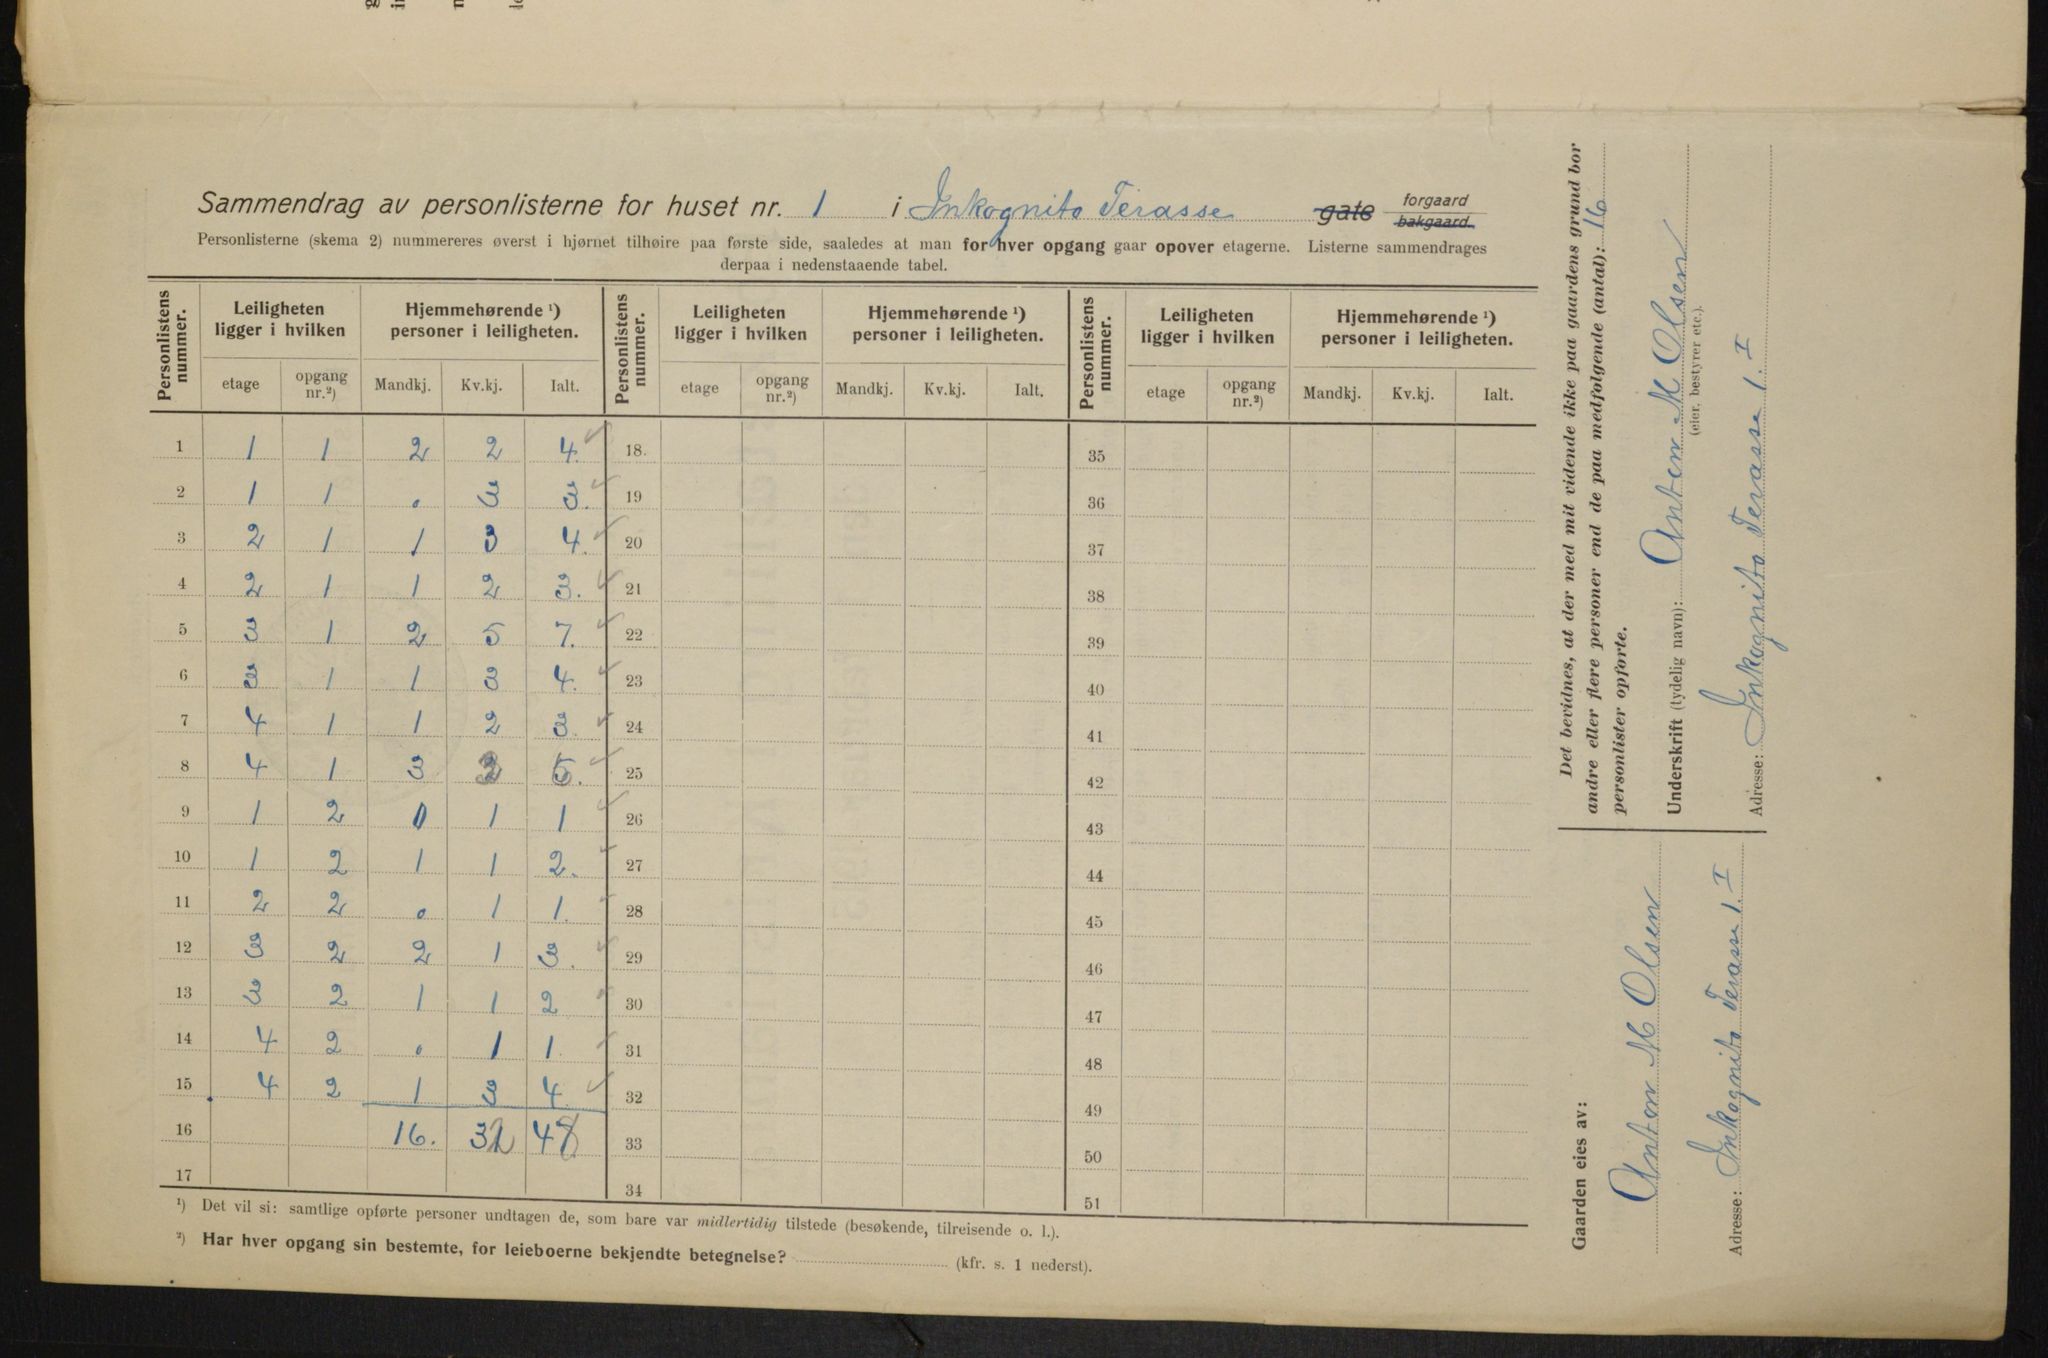 Sammendrag av personlisterne for huset nr. 1 i Inkognito Terasse gate forgaard bakgaard.
Personlisterne (skema 2) nummereres øverst i hjørnet tilhøire paa første side, saaledes at man for hver opgang gaar opover etagerne. Listerne sammendrages
derpaa i nedenstaaende tabel.
Personlistens nummer. Leiligheten ligger i hvilken Hjemmehørende ¹) personer i leiligheten. Personlistens nummer. Leiligheten ligger i hvilken Hjemmehørende ¹) personer i leiligheten. Personlistens nummer. Leiligheten ligger i hvilken Hjemmehørende ¹) personer i leiligheten.
etage opgang nr.²) Mandkj. Kv.kj. Ialt. etage opgang nr.²) Mandkj. Kv.kj. Ialt. etage opgang nr.²) Mandkj. Kv.kj. Ialt.
1 1 1 2 2 4. 18. 35
2 1 1 . 3 3. 19 36
3 2 1 1 3 4. 20 37
4 2 1 1 2 3. 21 38
5 3 1 2 5 7. 22 39
6 3 1 1 3 4. 23 40
7 4 1 1 2 3. 24 41
8 4 1 3 25 42
9 1 2 0 1 1 26 43
10 1 2 1 1 2. 27 44
11 2 2 . 1 1. 28 45
12 3 2 2 1 3. 29 46
13 3 2 1 1 2 30 47
14 4 2 . 1 1. 31 48
15 4 2 1 3 4 32 49
16 16. 32 48 33 50
17 34 51
¹) Det vil si: samtlige opførte personer undtagen de, som bare var midlertidig tilstede (besøkende, tilreisende o. l.).
²) Har hver opgang sin bestemte, for leieboerne bekjendte betegnelse? (kfr. s. 1 nederst).
Det bevidnes, at der med mit vidende ikke paa gaardens grund bor
andre eller flere personer end de paa medfølgende (antal): 16
personlister opførte.
Underskrift (tydelig navn): Anton M Olsen
(eier, bestyrer etc.).
Adresse: Inkognito Terasse 1. I
Gaarden eies av:
Anton M Olsen
Adresse: Inkognito Terasse 1. I